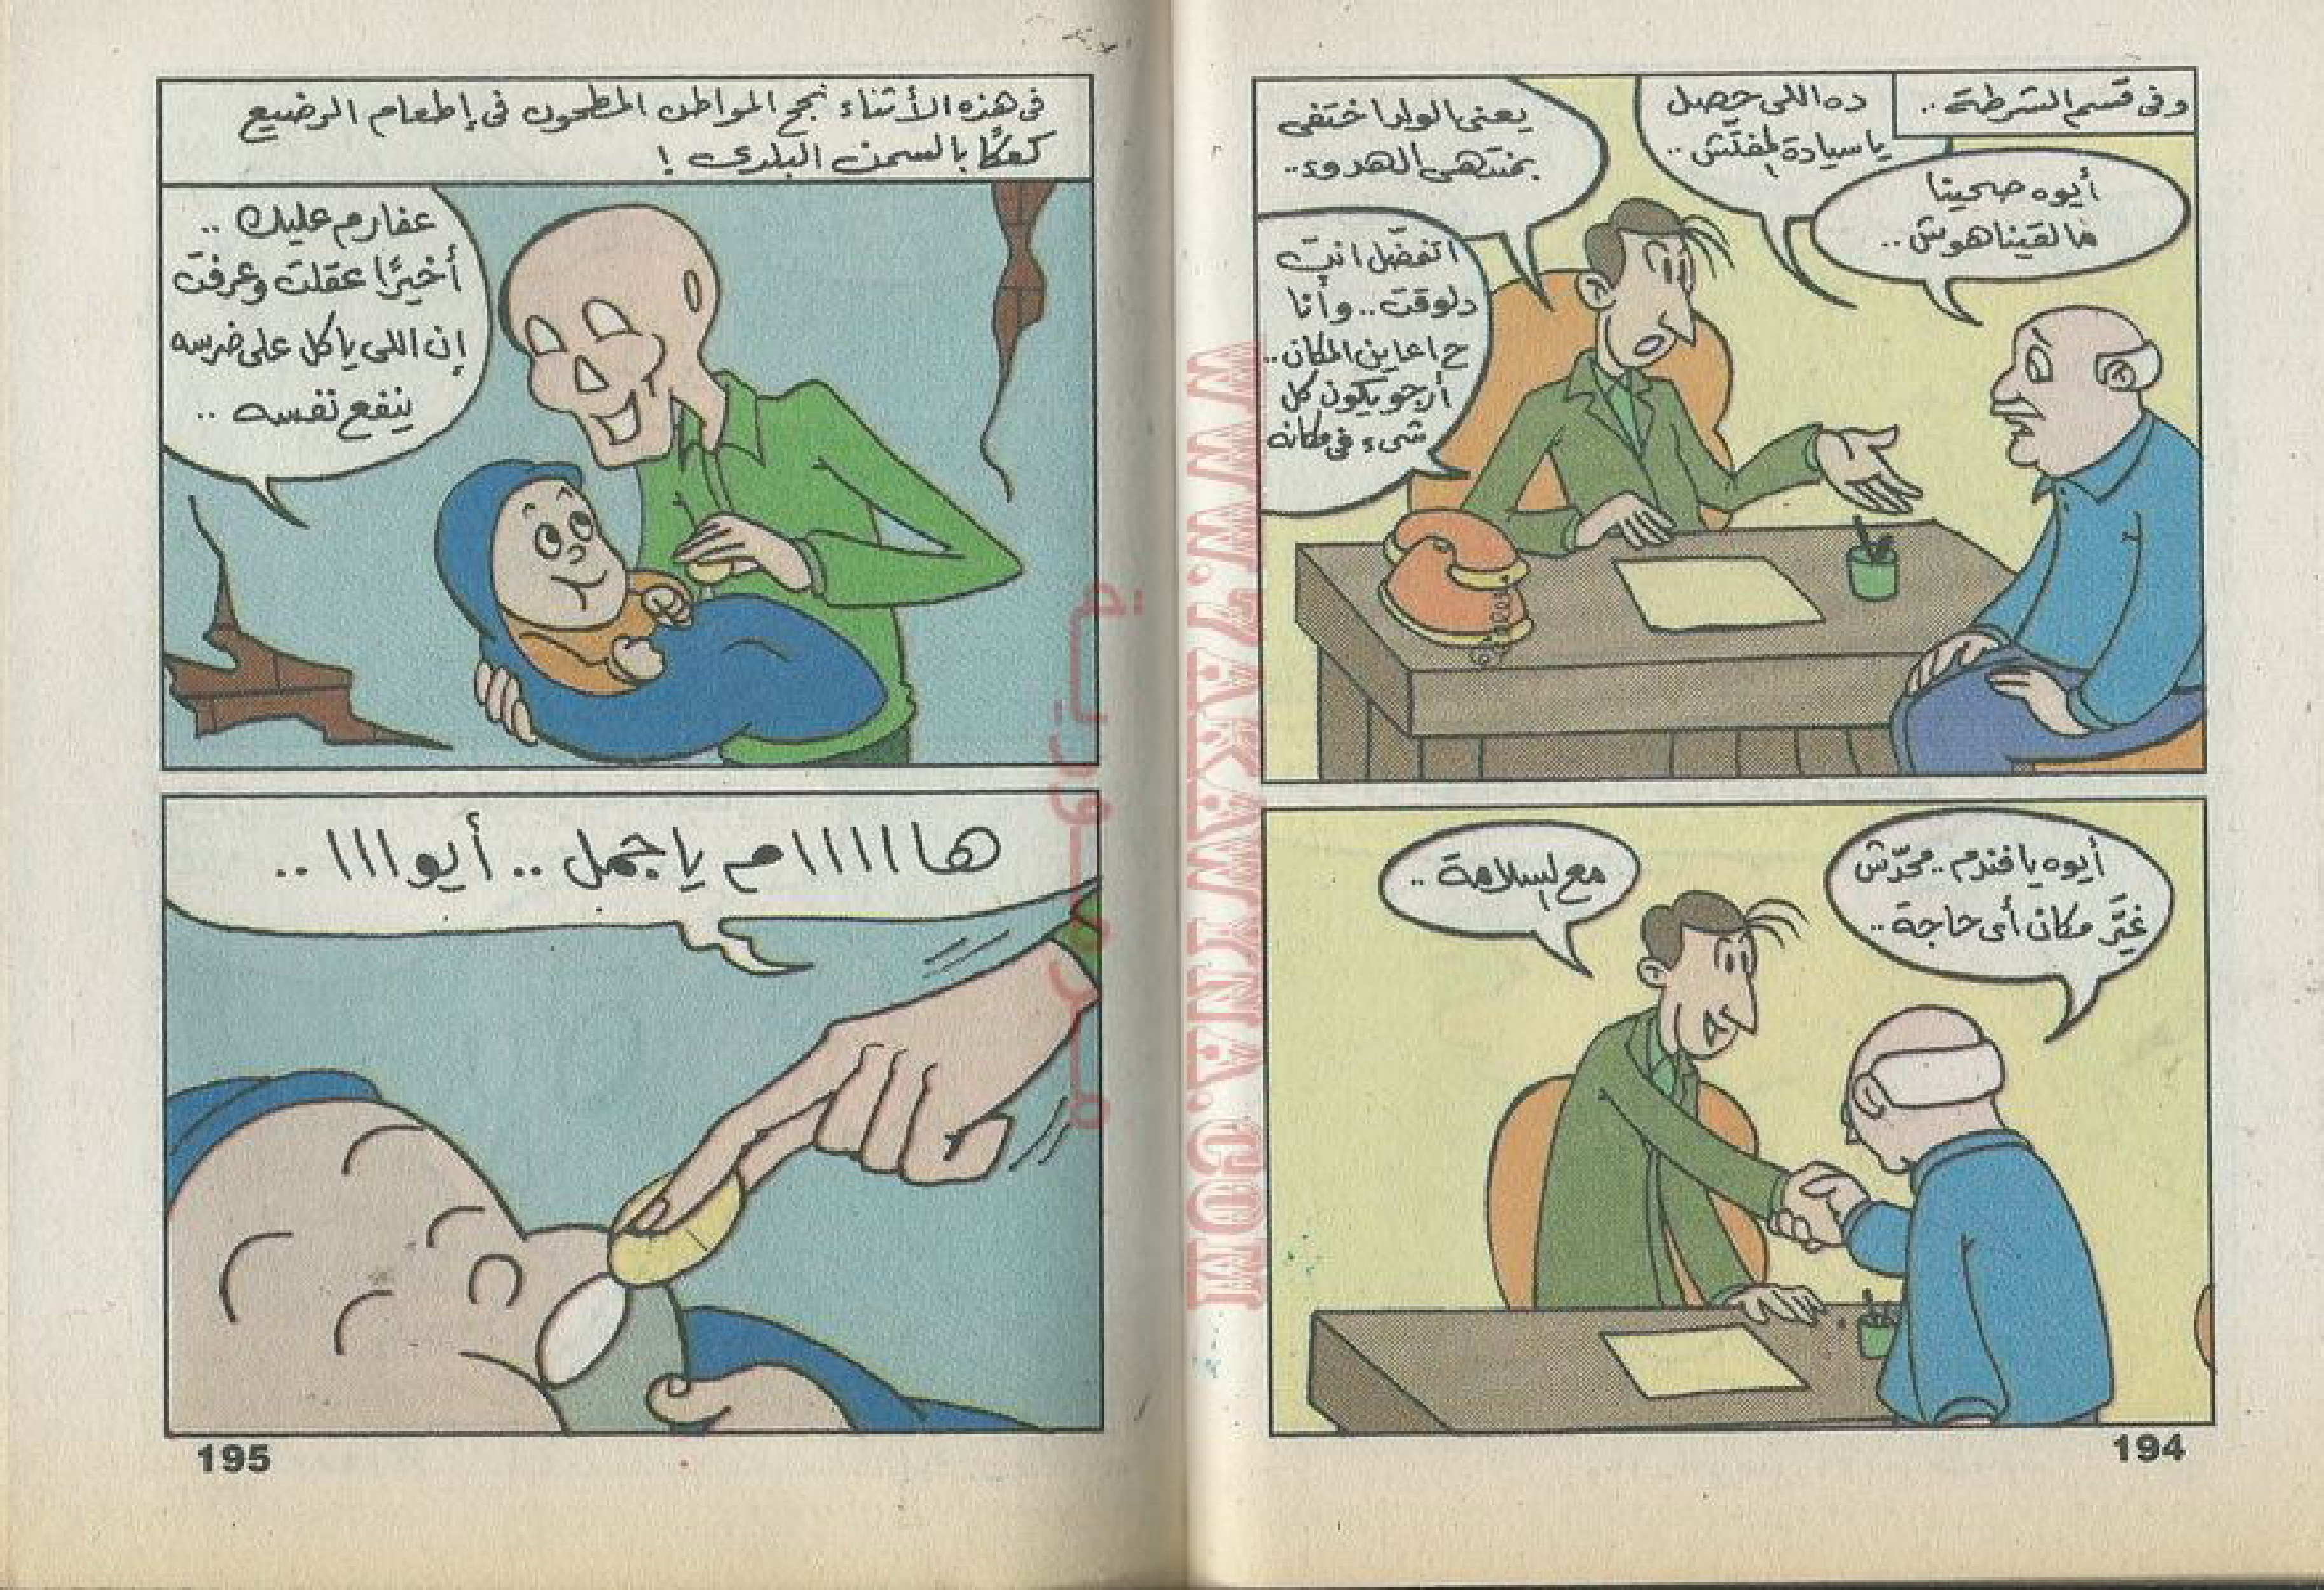 وفى قسم الشرطة ..
ده اللى حصل
يا سيادة المفتش ..
يعنى الولد اختفى
بمنتهى الهدوء..
أيوه صحينا
مالقيناهوش ..
اتفضل انت
دلوقت .. وأنا
ح اعاين المكان ..
أرجو يكون كل
شىء فى مكانه
أيوه يا فندم .. محدّش
غيَّر مكان أى حاجة ..
مع السلامة ..
194
فى هذه الأثناء نجح المواطن المطحون فى إطعام الرضيع
كعكًا بالسمن البلدى !
عفارم عليك ..
أخيرًا عقلت وعرفت
إن اللى ياكل على ضرسه
ينفع نفسه ..
هااااام يا جمل .. أيوااا ..
195